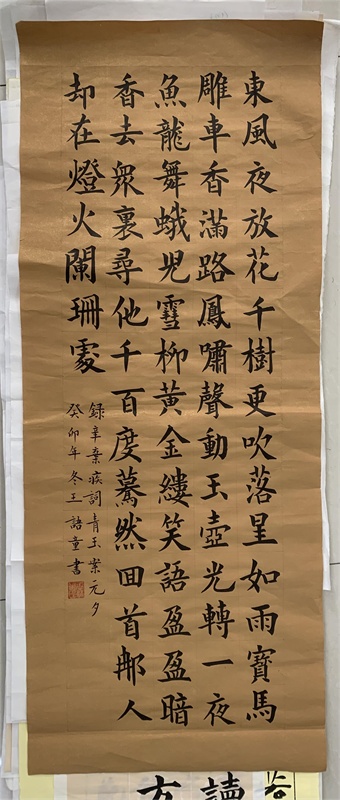 東風夜放花千樹更吹落星如雨寶馬
雕車香滿路鳳嘯聲動玉壺光轉一夜
魚龍舞蛾兒雪柳黃金縷笑語盈盈暗
香去衆裏尋他千百度驀然回首那人
却在燈火闌珊處
錄辛棄疾詞青玉案元夕
癸卯年冬王語童書